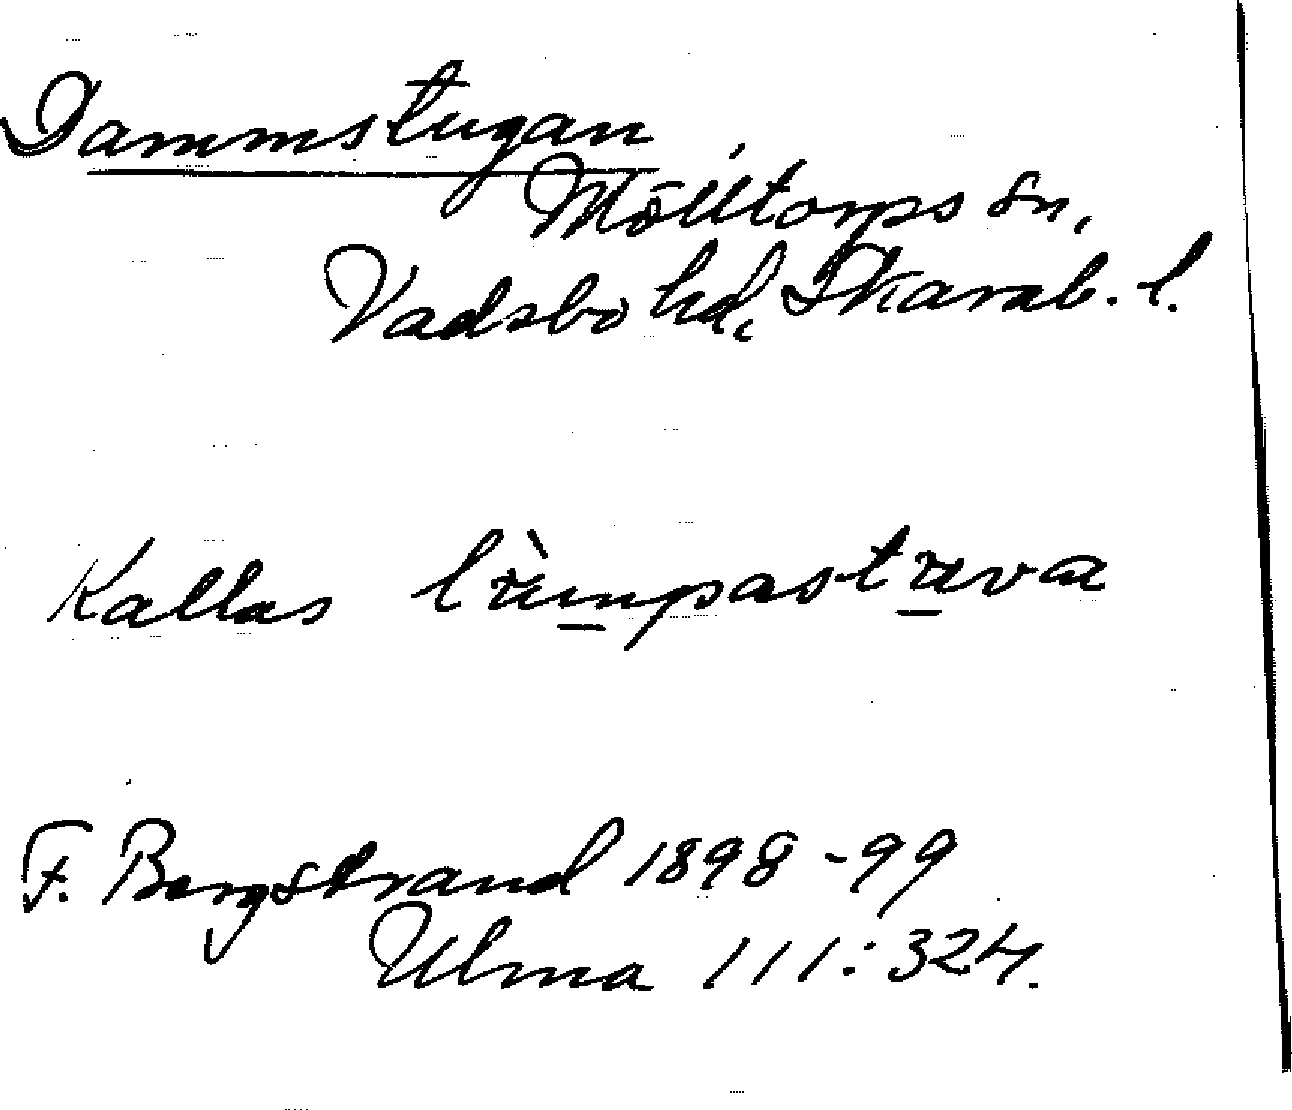 Dammstugan,
Mölltorps sn,
Vadsbo hd, Skarab. l.
Kallas
F. Bergstrand 1898-99
Ulma 111:324.